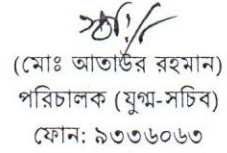 (মোঃ আতাউর রহমান)
পরিচালক (যুগ্ম-সচিব)
ফোন: ৯৩৩৬০৬৩